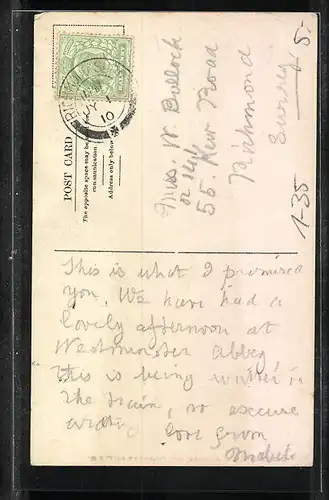 POST CARD
The opposite space may be
Address only below
Miss. W. Bullock
55. New Road
Richmond
Surrey
5.
1-35
This is what I promised
you. We have had a
lovely afternoon at
Westminster Abbey
This is being written in
the train, so excuse
writing love from
Mabel
RICHMOND
JY 1
10